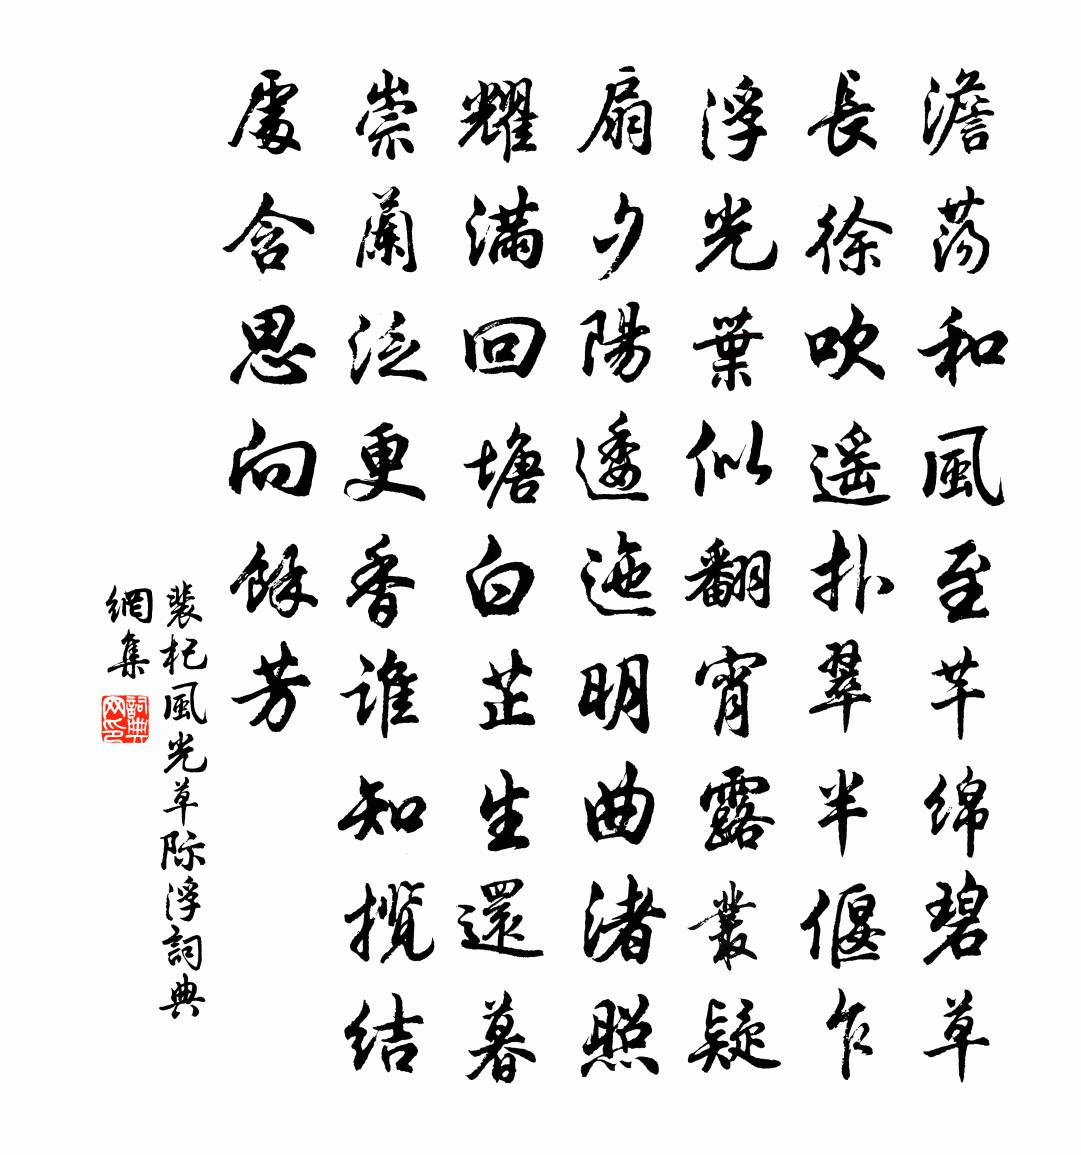 澹蕩和風至芊綿碧草
長徐吹遥扑翠半偃乍
浮光葉似翻宵露叢疑
扇夕陽逶迤明曲渚照
耀滿回塘白芷生還暮
崇蘭泛更香誰知揽结
處含思向餘芳
裴杞風光草际浮詞典
網集
詞典
网印